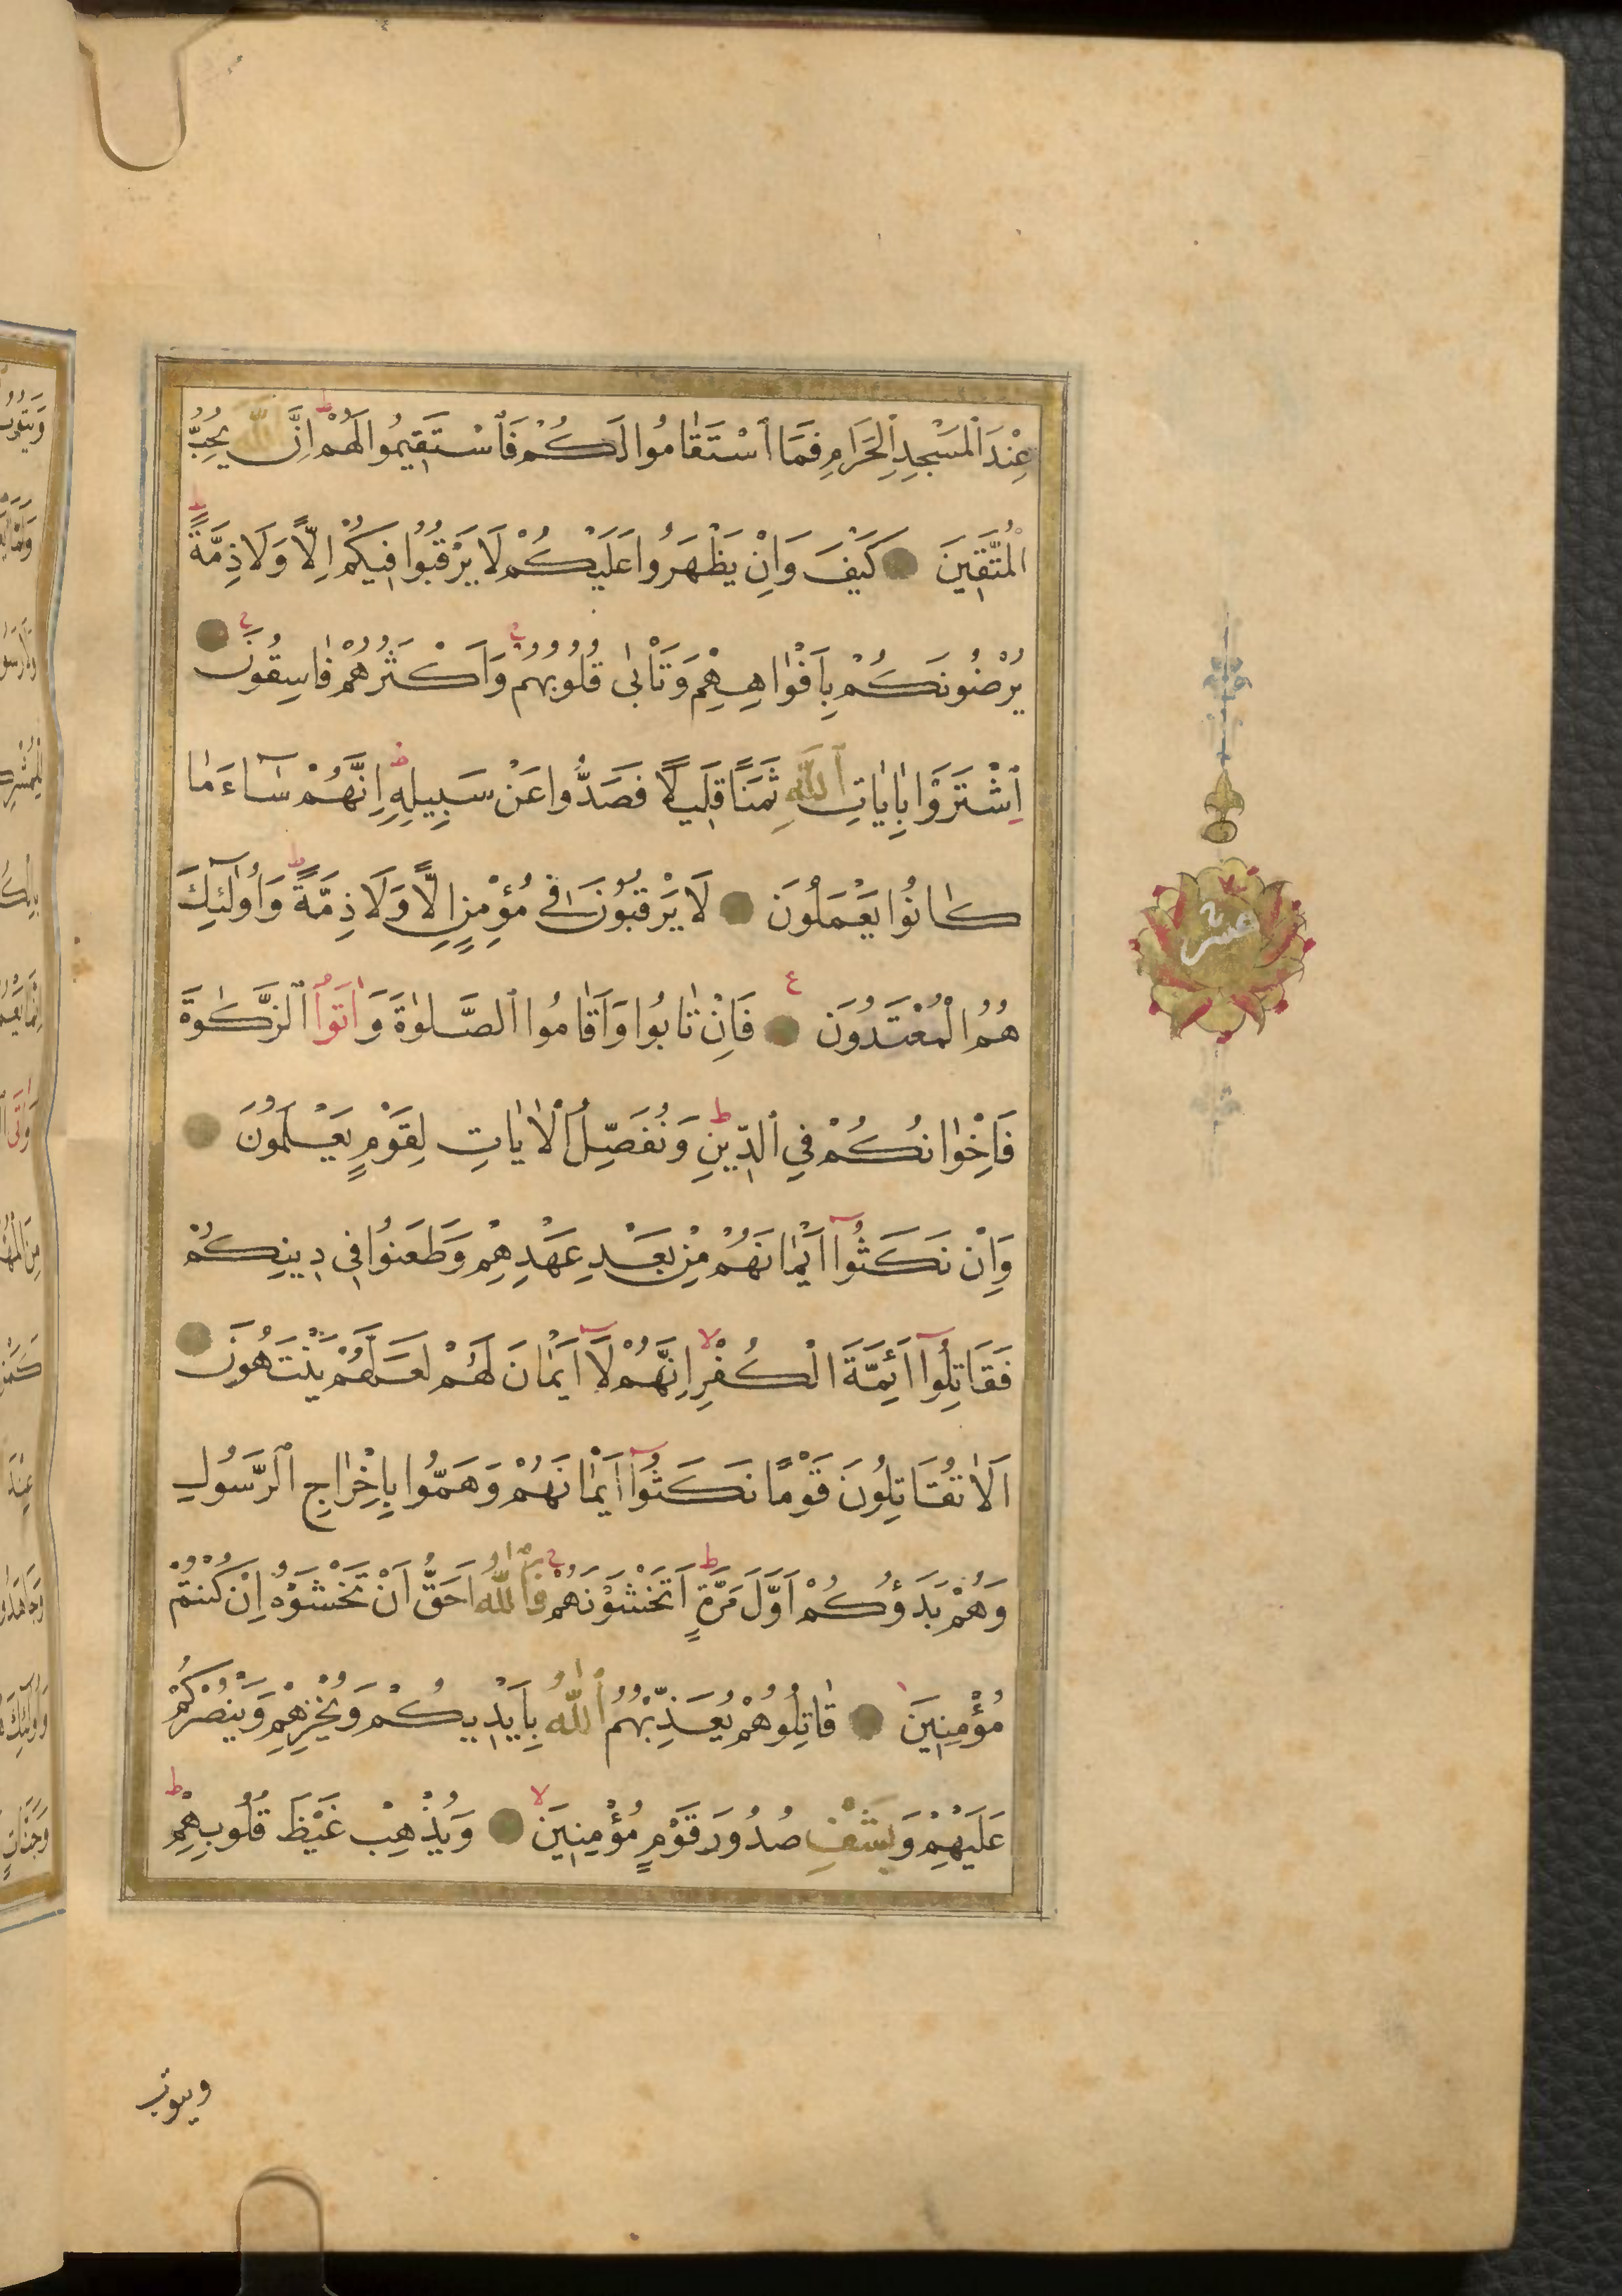 عِنْدَ ٱلْمَسْجِدِ ٱلْحَرَامِ فَمَا ٱسْتَقَامُوا لَكُمْ فَٱسْتَقِيمُوا لَهُمْ ط اِنَّ ٱللّٰهَ يُحِبُّ
الْمُتَّقِينَ كَيْفَ وَاِنْ يَظْهَرُوا عَلَيْكُمْ لَا يَرْقُبُوا فِيكُمْ اِلًّا وَلَا ذِمَّةً ط
يُرْضُونَكُمْ بِاَفْوَاهِهِمْ وَتَأْبٰى قُلُوبُهُمْ ج وَاَكْثَرُهُمْ فَاسِقُونَ ج
اِشْتَرَوْا بِاٰيَاتِ ٱللّٰهِ ثَمَنًا قَلِيلًا فَصَدُّوا عَنْ سَبِيلِهِ ط اِنَّهُمْ سَٓاءَ مَا
كَانُوا يَعْمَلُونَ لَا يَرْقُبُونَ فِي مُؤْمِنٍ اِلًّا وَلَا ذِمَّةً ط وَاُولٰٓئِكَ
هُمُ الْمُعْتَدُونَ ع فَاِنْ تَابُوا وَاَقَامُوا ٱلصَّلٰوةَ وَاٰتَوُا ٱلزَّكٰوةَ
فَاِخْوَانُكُمْ فِي ٱلدِّينِ ط وَنُفَصِّلُ ٱلْاٰيَاتِ لِقَوْمٍ يَعْلَمُونَ
وَاِنْ نَكَثُٓوا اَيْمَانَهُمْ مِنْ بَعْدِ عَهْدِهِمْ وَطَعَنُوا فِي دِينِكُمْ
فَقَاتِلُٓوا اَئِمَّةَ الْكُفْرِ لا اِنَّهُمْ لَٓا اَيْمَانَ لَهُمْ لَعَلَّهُمْ يَنْتَهُونَ
اَلَا تُقَاتِلُونَ قَوْمًا نَكَثُٓوا اَيْمَانَهُمْ وَهَمُّوا بِاِخْرَاجِ ٱلرَّسُولِ
وَهُمْ بَدَؤُكُمْ اَوَّلَ مَرَّةٍ ط اَتَخْشَوْنَهُمْ ج فَٱللّٰهُ اَحَقُّ اَنْ تَخْشَوْهُ اِنْ كُنْتُمْ
مُؤْمِنِينَ قَاتِلُوهُمْ يُعَذِّبْهُمُ ٱللّٰهُ بِاَيْدِيكُمْ وَيُخْزِهِمْ وَيَنْصُرْكُمْ
عَلَيْهِمْ وَيَشْفِ صُدُورَ قَوْمٍ مُؤْمِنِينَ لا وَيُذْهِبْ غَيْظَ قُلُوبِهِمْ ط
ويتوب
عشر